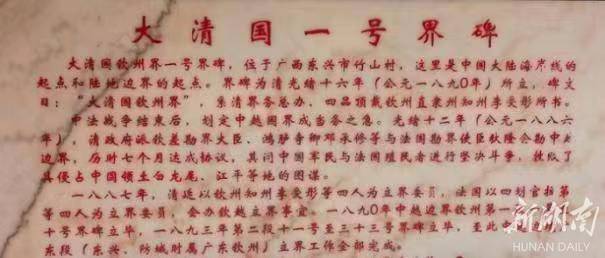 大清国一号界碑
大清国钦州界一号界碑，位于广西东兴市竹山村，这里是中国大陆海岸线的
起点和陆地边界的起点。界碑为清光绪十六年（公元一八九0年）所立，碑文
曰："大清国钦州界"，系清界务总办、四品顶戴钦州直隶州知州李受彤所书。
中法战争结束后，划定中越国界成当务之急。光绪十二年（公元一八八六
年），清政府派钦差勘界大臣、鸿胪寺卿邓承修等与法国勘界使臣狄隆会勘中越
边界，历时七个月达成协议，其间中国军民与法国殖民者进行坚决斗争，挫败了
其侵占中国领土白龙尾、江平等地的图谋。
一八八七年，清廷以钦州知州李受彤等四人为立界委员，法国以四划官拉
等四人为立界委员，会办钦越立界事宜。一八九0年中越边界钦州第一
十号界碑立毕，一八九三年第二段十一号至三十三号界碑立毕，至此
东段（东兴、防城时属广东钦州）立界工作全部完成。
新湖南
HUNAN DAILY